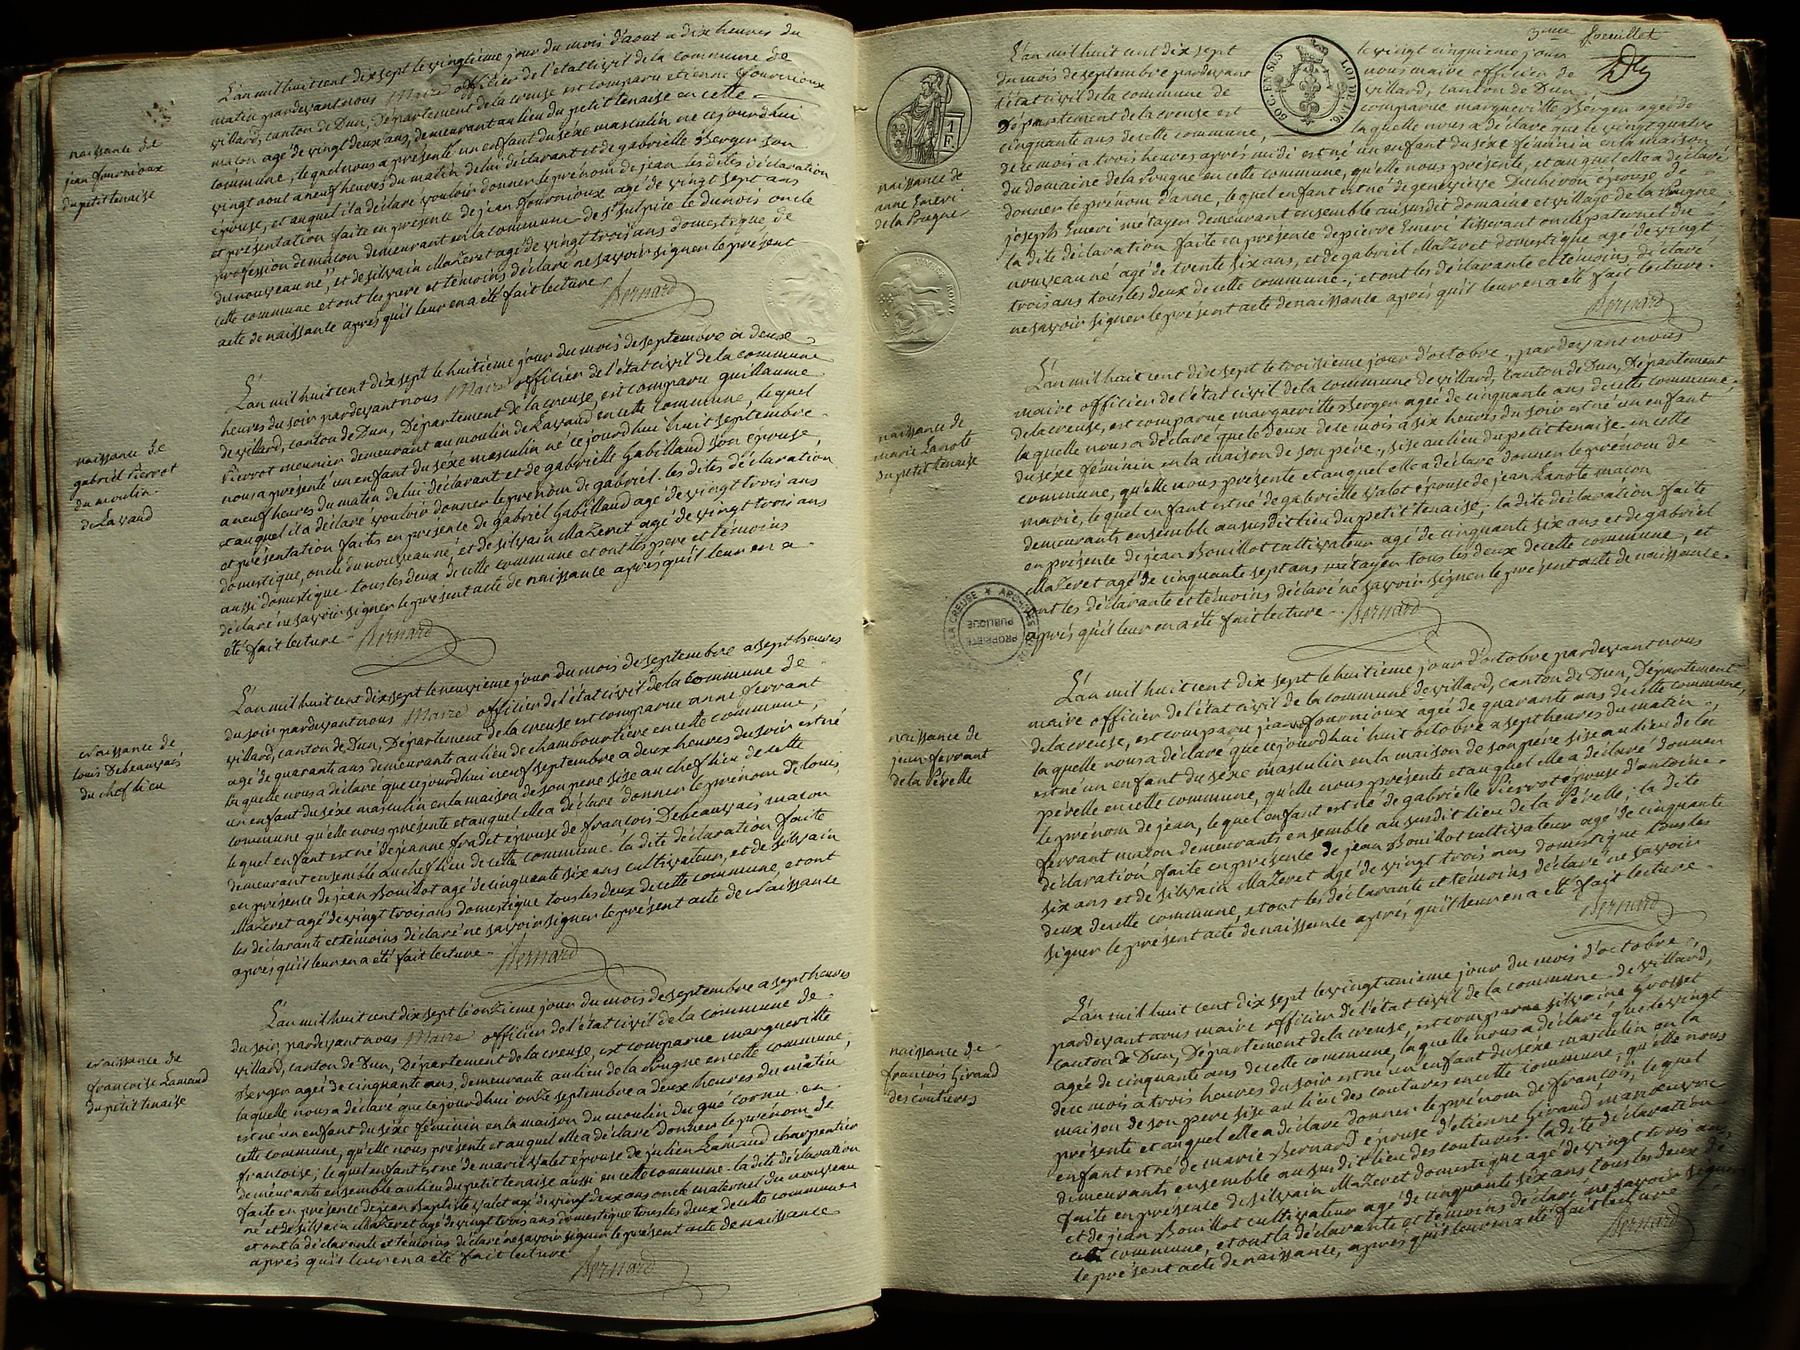 naissance de
jean fournioux
du petit tenaise
L'an mil huit cent dix sept le vingtième jour du mois d'aout a dix heures du
matin pardevant nous Maire officier de l'etat civil de la commune de
villard, canton de Dun, Département de la creuse est comparu etienne fournioux
maçon agé de vingt deux ans, demeurant au lieu du petit tenaise en cette
commune, lequel nous a présenté un enfant du séxe masculin né cejourdhui
vingt aout a neuf heures du matin de lui déclarant et de gabrielle Berger son
épouse, et auquel il a déclaré vouloir donner le prénom de jean les dites déclaration
et présentation faite en présence de jean fournioux agé de vingt sept ans
profession de maçon demeurant en la commune de St sulpice le Dunois oncle
du nouveau né, et de silvain Mazeret agé de vingt trois ans domestique, de
cette commune et ont les pere et témoins déclaré ne savoir signer le présent
acte de naissance après qu'il leur en a été fait lecture
Bernard
naissance de
gabriel Pierrot
du moulin
de Lavaud
L'an mil huit cent dix sept le huitième jour du mois de septembre a deux
heures du soir pardevant nous Maire officier de l'état civil de la commune
de villard, canton de Dun, Département de la creuse, est comparu guillaume
Pierrot meunier demeurant au moulin de Lavaud en cette commune, lequel
nous a présenté un enfant du séxe masculin né ce jourdhui huit septembre
a neuf heures du matin de lui déclarant et de gabrielle Gabillaud son épouse,
et auquel il a déclaré vouloir donner le prénom de gabriel. les dites déclaration
et présentation faites en présence de gabriel Gabillaud agé de vingt trois ans
domestique, oncle du nouveau né, et de silvain Mazeret agé de vingt trois ans
aussi domestique tous les deux de cette commune et ont les pere et témoins
déclaré ne savoir signer le présent acte de naissance après qu'il leur en a
été fait lecture Bernard
naissance de
louis Debeauvais
du chef lieu
L'an mil huit cent dix sept le neuvième jour du mois de septembre a sept heures
du soir pardevant nous Maire officier de l'état civil de la commune de
villard, canton de Dun, Département de la creuse est comparue anne ferrant
agé de quarante ans demeurante au lieu de chambourtière en cette commune,
laquelle nous a déclaré que cejourdhui neuf septembre a deux heures du soir est né
un enfant du séxe masculin en la maison de son pere sise au chef lieu de cette
commune qu'elle nous présente et auquel elle a déclaré donner le prénom de louis,
lequel enfant est né de jeanne fradet épouse de françois Debeauvais maçon
demeurant ensemble au chef lieu de cette commune. la dite déclaration faite
en présence de jean Bouillot agé de cinquante six ans cultivateur, et de silvain
Mazeret agé de vingt trois ans domestique tous les deux de cette commune, et ont
les déclarante et témoins déclaré ne savoir signer le présent acte de naissance
après qu'il leur en a été fait lecture Bernard
naissance de
francoise Lamaud
du petit tenaise
L'an mil huit cent dix sept le onzième jour du mois de septembre a sept heures
du soir, pardevant nous Maire officier de l'état civil de la commune de
villard, canton de Dun, Département de la creuse, est comparue margueritte
Berger ageé de cinquante ans, demeurante au lieu de la Prugne en cette commune,
laquelle nous a déclaré que ce jourdhui onze septembre a deux heures du matin
est né un enfant du séxe féminin en la maison du moulin du gué cornu en
cette commune, qu'elle nous présente et auquel elle a déclaré donner le prénom de
francoise; lequel enfant est né de marie valet épouse de julien Lamaud charpentier
demeurants ensemble au lieu du petit tenaise aussi en cette commune. la dite déclaration
faite en présence de jean Baptiste valet agé de vingt deux ans oncle maternel du nouveau
né et de silvain Mazeret agé de vingt trois ans domestique tous les deux de cette commune
et ont la déclarante et témoins déclaré ne savoir signer le présent acte de naissance
après qu'il leur en a été fait lecture
Bernard
3me feuillet
1 F.
50 C. EN SUS
LOI DE 1816
naissance de
anne Emeri
de la Prugne
L'an mil huit cent dix sept le vingt cinquième jour
du mois de septembre pardevant nous maire officier de
l'état civil de la commune de villard, canton de Dun
Département de la creuse est comparue margueritte Berger ageé de
cinquante ans de cette commune, laquelle nous a déclaré que le vingt quatre
de ce mois a trois heures après midi est né un enfant du séxe féminin en la maison
du domaine de la Prugne en cette commune, qu'elle nous présente, et auquel elle a déclaré
donner le prénom d'anne, lequel enfant est né de geneviève Duchiron épouse de
joseph Emeri métayer demeurant ensemble au susdit domaine et village de la Prugne
la dite déclaration faite en présence de pierre Emeri tisserant oncle paternel du
nouveau né agé de trente six ans, et de gabriel Mazeret domestique agé de vingt
trois ans tous les deux de cette commune, et ont les déclarante et témoins déclaré
ne savoir signer le présent acte de naissance après qu'il leur en a été fait lecture.
Bernard
naissance de
marie Lanote
du petit tenaise
L'an mil huit cent dix sept le troisième jour d'octobre, pardevant nous
maire officier de l'état civil de la commune de villard, canton de Dun, Département
de la creuse, est comparue margueritte Berger ageé de cinquante ans de cette commune,
laquelle nous a déclaré que le deux de ce mois a six heures du soir est né un enfant
du séxe féminin en la maison de son pére, sise au lieu du petit tenaise en cette
commune, qu'elle nous présente et auquel elle a déclaré donner le prénom de
marie, lequel enfant est né de gabrielle valet épouse de jean Lanote maçon
demeurants ensemble au susdit lieu du petit tenaise, la dite déclaration faite
en présence de jean Bouillot cultivateur agé de cinquante six ans et de gabriel
Mazeret agé de cinquante sept ans métayer tous les deux de cette commune, et
ont les déclarante et témoins déclaré ne savoir signer le présent acte de naissance
après qu'il leur en a été fait lecture Bernard
ARCHIVES DE LA CREUSE
PROPRIETE
PUBLIQUE
naissance de
jean ferrant
de la Pérelle
L'an mil huit cent dix sept le huitième jour d'octobre pardevant nous
maire officier de l'état civil de la commune de villard, canton de Dun, Département
de la creuse, est comparu jean fournioux ageé de quarante ans de cette commune,
laquelle nous a déclaré que cejourdhui huit octobre a sept heures du matin
est né un enfant du séxe masculin en la maison de son pére sise au lieu de la
perelle en cette commune, qu'elle nous présente et auquel elle a déclaré donner
le prénom de jean, lequel enfant est né de gabrielle Pierrot épouse d'antoine
ferrant maçon demeurants ensemble au susdit lieu de la Pérelle; la dite
déclaration faite en présence de jean Bouillot cultivateur agé de cinquante
six ans et de silvain Mazeret agé de vingt trois ans domestique tous les
deux de cette commune, et ont les déclarante et témoins déclaré ne savoir
signer le présent acte de naissance après qu'il leur en a été fait lecture
Bernard
naissance de
françois Giraud
des coutures
L'an mil huit cent dix sept le vingt unième jour du mois d'octobre,
pardevant nous maire officier de l'état civil de la commune de villard,
canton de Dun, Département de la creuse, est comparue silvaine Grosset
ageé de cinquante ans de cette commune, laquelle nous a déclaré que le vingt
de ce mois a trois heures du soir est né un enfant du séxe masculin en la
maison de son pere sise au lieu des coutures en cette commune, qu'elle nous
présente et auquel elle a déclaré donner le prénom de françois, lequel
enfant est né de marie Bernard épouse d'etienne Giraud manoeuvre
demeurants ensemble au susdit lieu des coutures. la dite déclaration
faite en présence de silvain Mazeret domestique agé de vingt trois ans,
et de jean Bouillot cultivateur agé de cinquante six ans tous les deux de
cette commune, et ont la déclarante et témoins déclaré ne savoir signer
le présent acte de naissance, après qu'il leur en a été fait lecture
Bernard